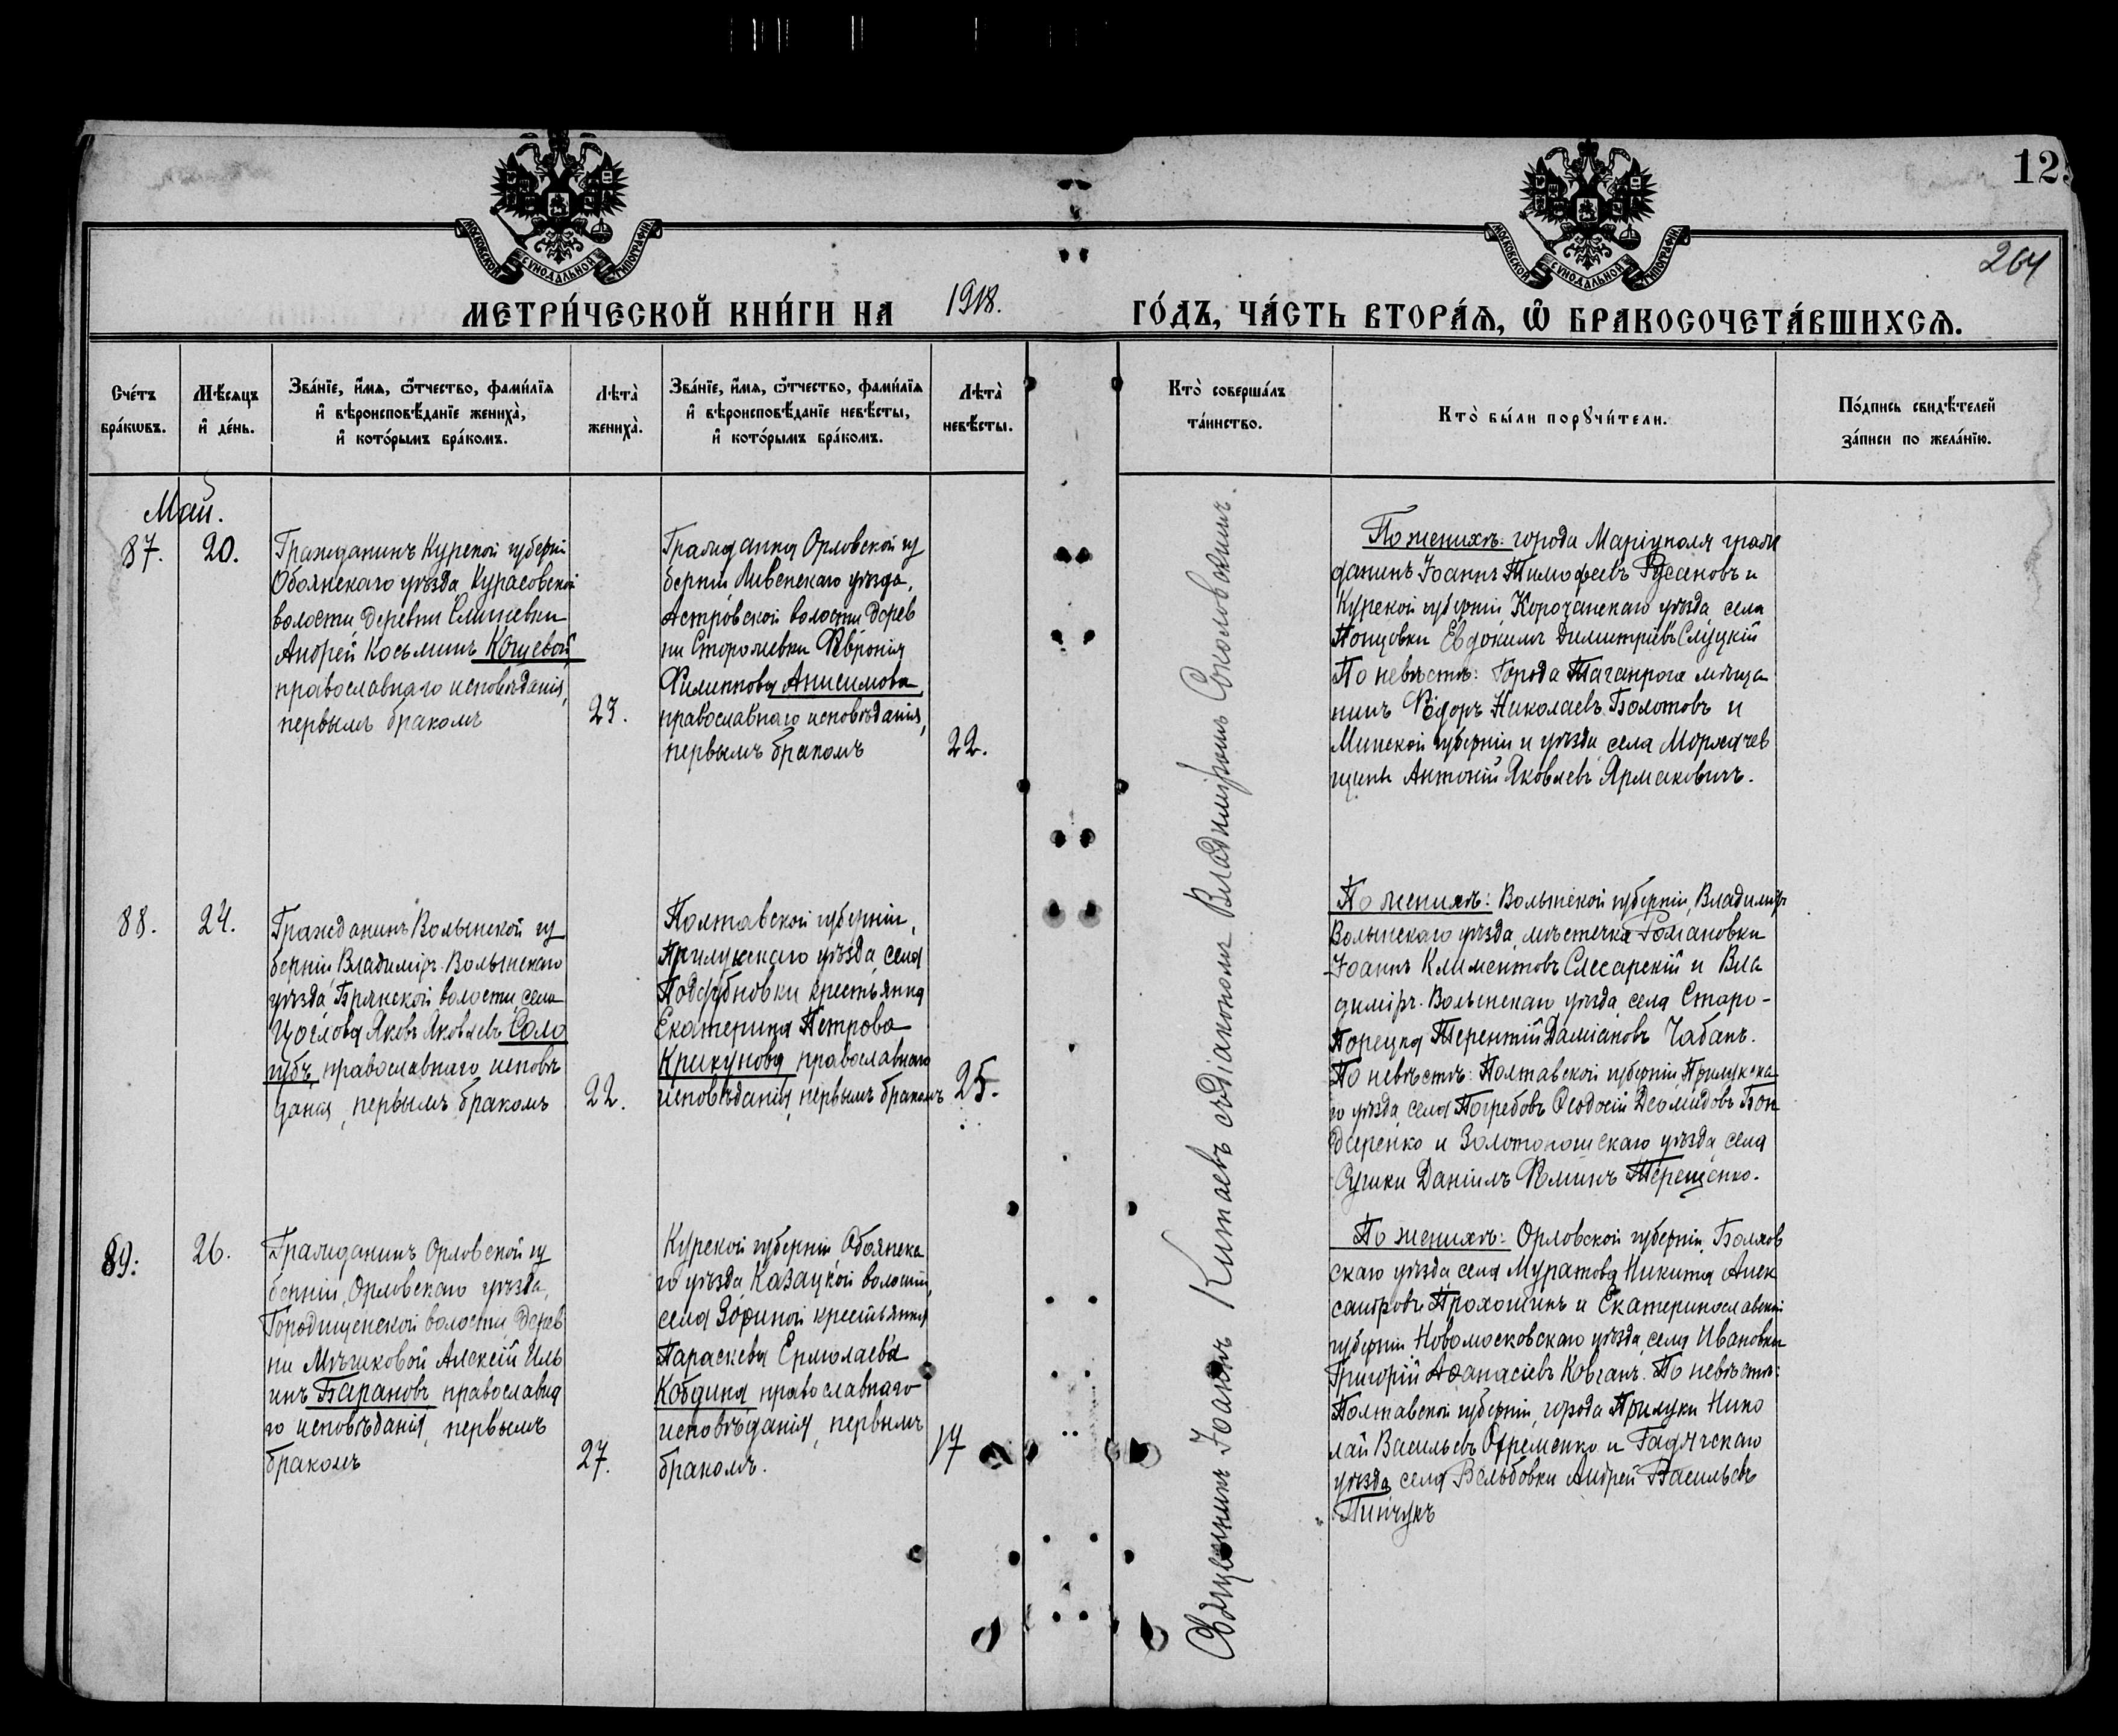 МОСКОВСКОЙ СУНОДАЛЬНОЙ ТИПОГРАФІИ
МОСКОВСКОЙ СУНОДАЛЬНОЙ ТИПОГРАФІИ
12
264
МЕТРИ́ЧЕСКОЙ КНИ́ГИ НА 1918. ГО́ДЪ, ЧА́СТЬ ВТОРА́Ѧ, Ѡ҆ БРАКОСОЧЕТА́ВШИХСѦ.
Сче́тъ
бра́кѡвъ.
Мѣ́сѧцъ
и҆ де́нь.
Зва́нїе, и҆́мѧ, ѻ҆́тчество, фами́лїѧ
и҆ вѣроисповѣ́данїе женихà,
и҆ кото́рымъ бра́комъ.
Лѣтà
женихà.
Зва́нїе, и҆́мѧ, ѻ҆́тчество, фами́лїѧ
и҆ вѣроисповѣ́данїе невѣ́сты,
и҆ кото́рымъ бра́комъ.
Лѣтà
невѣ́сты.
Кто̀ соверша́лъ
та́инство.
Кто̀ бы́ли порꙋчи́тели.
По́дпись свидѣ́телей
за́писи по жела́нїю.
Май.
87.
20.
Гражданинъ Курской губерніи
Обоянскаго уѣзда, Курасовской
волости деревни
Андрей Косьминъ Кошевой,
православнаго исповѣданія,
первымъ бракомъ
23.
Гражданка Орловской гу
берніи Ливенскаго уѣзда,
Астровской волости дерев
ни Сторожевки Ѳеврония
Филиппова Анисимова,
православнаго исповѣданія,
первымъ бракомъ
22.
Священникъ Іоаннъ Китаевъ съ діакономъ Владиміромъ Соколовскимъ.
По женихѣ: города Маріуполя граж
данинъ Іоаннъ Тимофеевъ Русановъ и
Курской губерніи Корочанскаго уѣзда, села
Попцовки Евдокимъ Димитріевъ Слуцкій
По невѣстѣ: Города Таганрога мѣща
нинъ Ѳедоръ Николаевъ Болотовъ и
Минской губерніи и уѣзда села Моржачев
щины Антоній Яковлевъ Ярмаковичъ.
88.
24.
Гражданинъ Волынской гу
берніи Владиміръ-Волынскаго
уѣзда, волости, села
Яковъ Яковлевъ Соло
губъ, православнаго исповѣ
данія, первымъ бракомъ
22.
Полтавской губерніи,
Прилукскаго уѣзда, села
Поддубновки крестьянка
Екатерина Петрова
Крикунова православнаго
исповѣданія, первымъ бракомъ
25.
По женихѣ: Волынской губерніи, Владиміръ
Волынскаго уѣзда, мѣстечка Романовки
Іоаннъ Климентовъ Слесарскій и Вла
диміръ-Волынскаго уѣзда села Старо-
Порецка Терентій Даміановъ Чабанъ.
По невѣстѣ: Полтавской губерніи, Прилукска
го уѣзда села Погребовъ Ѳеодосій Деомидовъ Бон
даренко и Золотоношскаго уѣзда, села
Сушки Даніилъ Ѳоминъ Терещенко.
89.
26.
Гражданинъ Орловской гу
берніи, Орловскаго уѣзда,
Городищенской волости дерев
ни Мѣшковой Алексій Иль
инъ Барановъ православна
го исповѣданія, первымъ
бракомъ
27.
Курской губерніи Обоянска
го уѣзда, Казацкой волости,
села Зориной крестьянка
Параскева Ермолаева
Кобдина, православнаго
исповѣданія, первымъ
бракомъ.
17
По женихѣ: Орловской губерніи, Болхов
скаго уѣзда, села Муратова Никита Алек
сандровъ Прохошинъ и Екатеринославской
губерніи, Новомосковскаго уѣзда, села Ивановки
Григорій Аѳанасіевъ Ковганъ. По невѣстѣ:
Полтавской губерніи, города Прилуки Нико
лай Васильевъ Ефременко и Гадячскаго
уѣзда, села Вельбовки Андрей Васильевъ
Пинчукъ